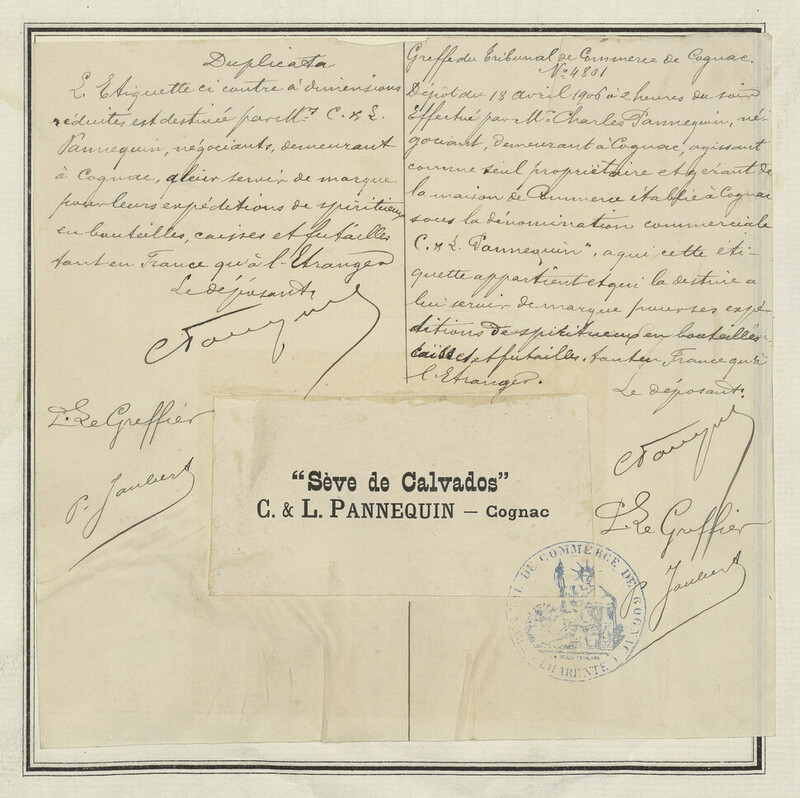 Duplicata
L'Etiquette ci contre à dimensions
réduites est destinée par Mrs C. & L.
Pannequin, négociants, demeurant
à Cognac, à leur servir de marque
pour leurs expéditions de spiritueux
en bouteilles, caisses et futailles
tant en France qu'à l'Etranger
Le déposant,
P. Le Greffier
P. Joubert
Greffe du Tribunal de Commerce de Cognac.
No 4801
Dépôt du 18 avril 1906 à 2 heures du soir
Effectué par Mr Charles Pannequin, né-
gociant, demeurant à Cognac, agissant
comme seul propriétaire et gérant de
la maison de Commerce établie à Cognac
sous la dénomination commerciale
C. & L. Pannequin", a qui cette éti-
quette appartient et qui la destine a
lui servir de marque pour ses expé-
ditions de spiritueux en bouteilles
caisses et futailles, tant en France qu'à
l'Etranger.
Le déposant,
P. Le Greffier
P. Joubert
"Sève de Calvados"
C. & L. PANNEQUIN — Cognac
TRIBUNAL DE COMMERCE DE COGNAC
CHARENTE